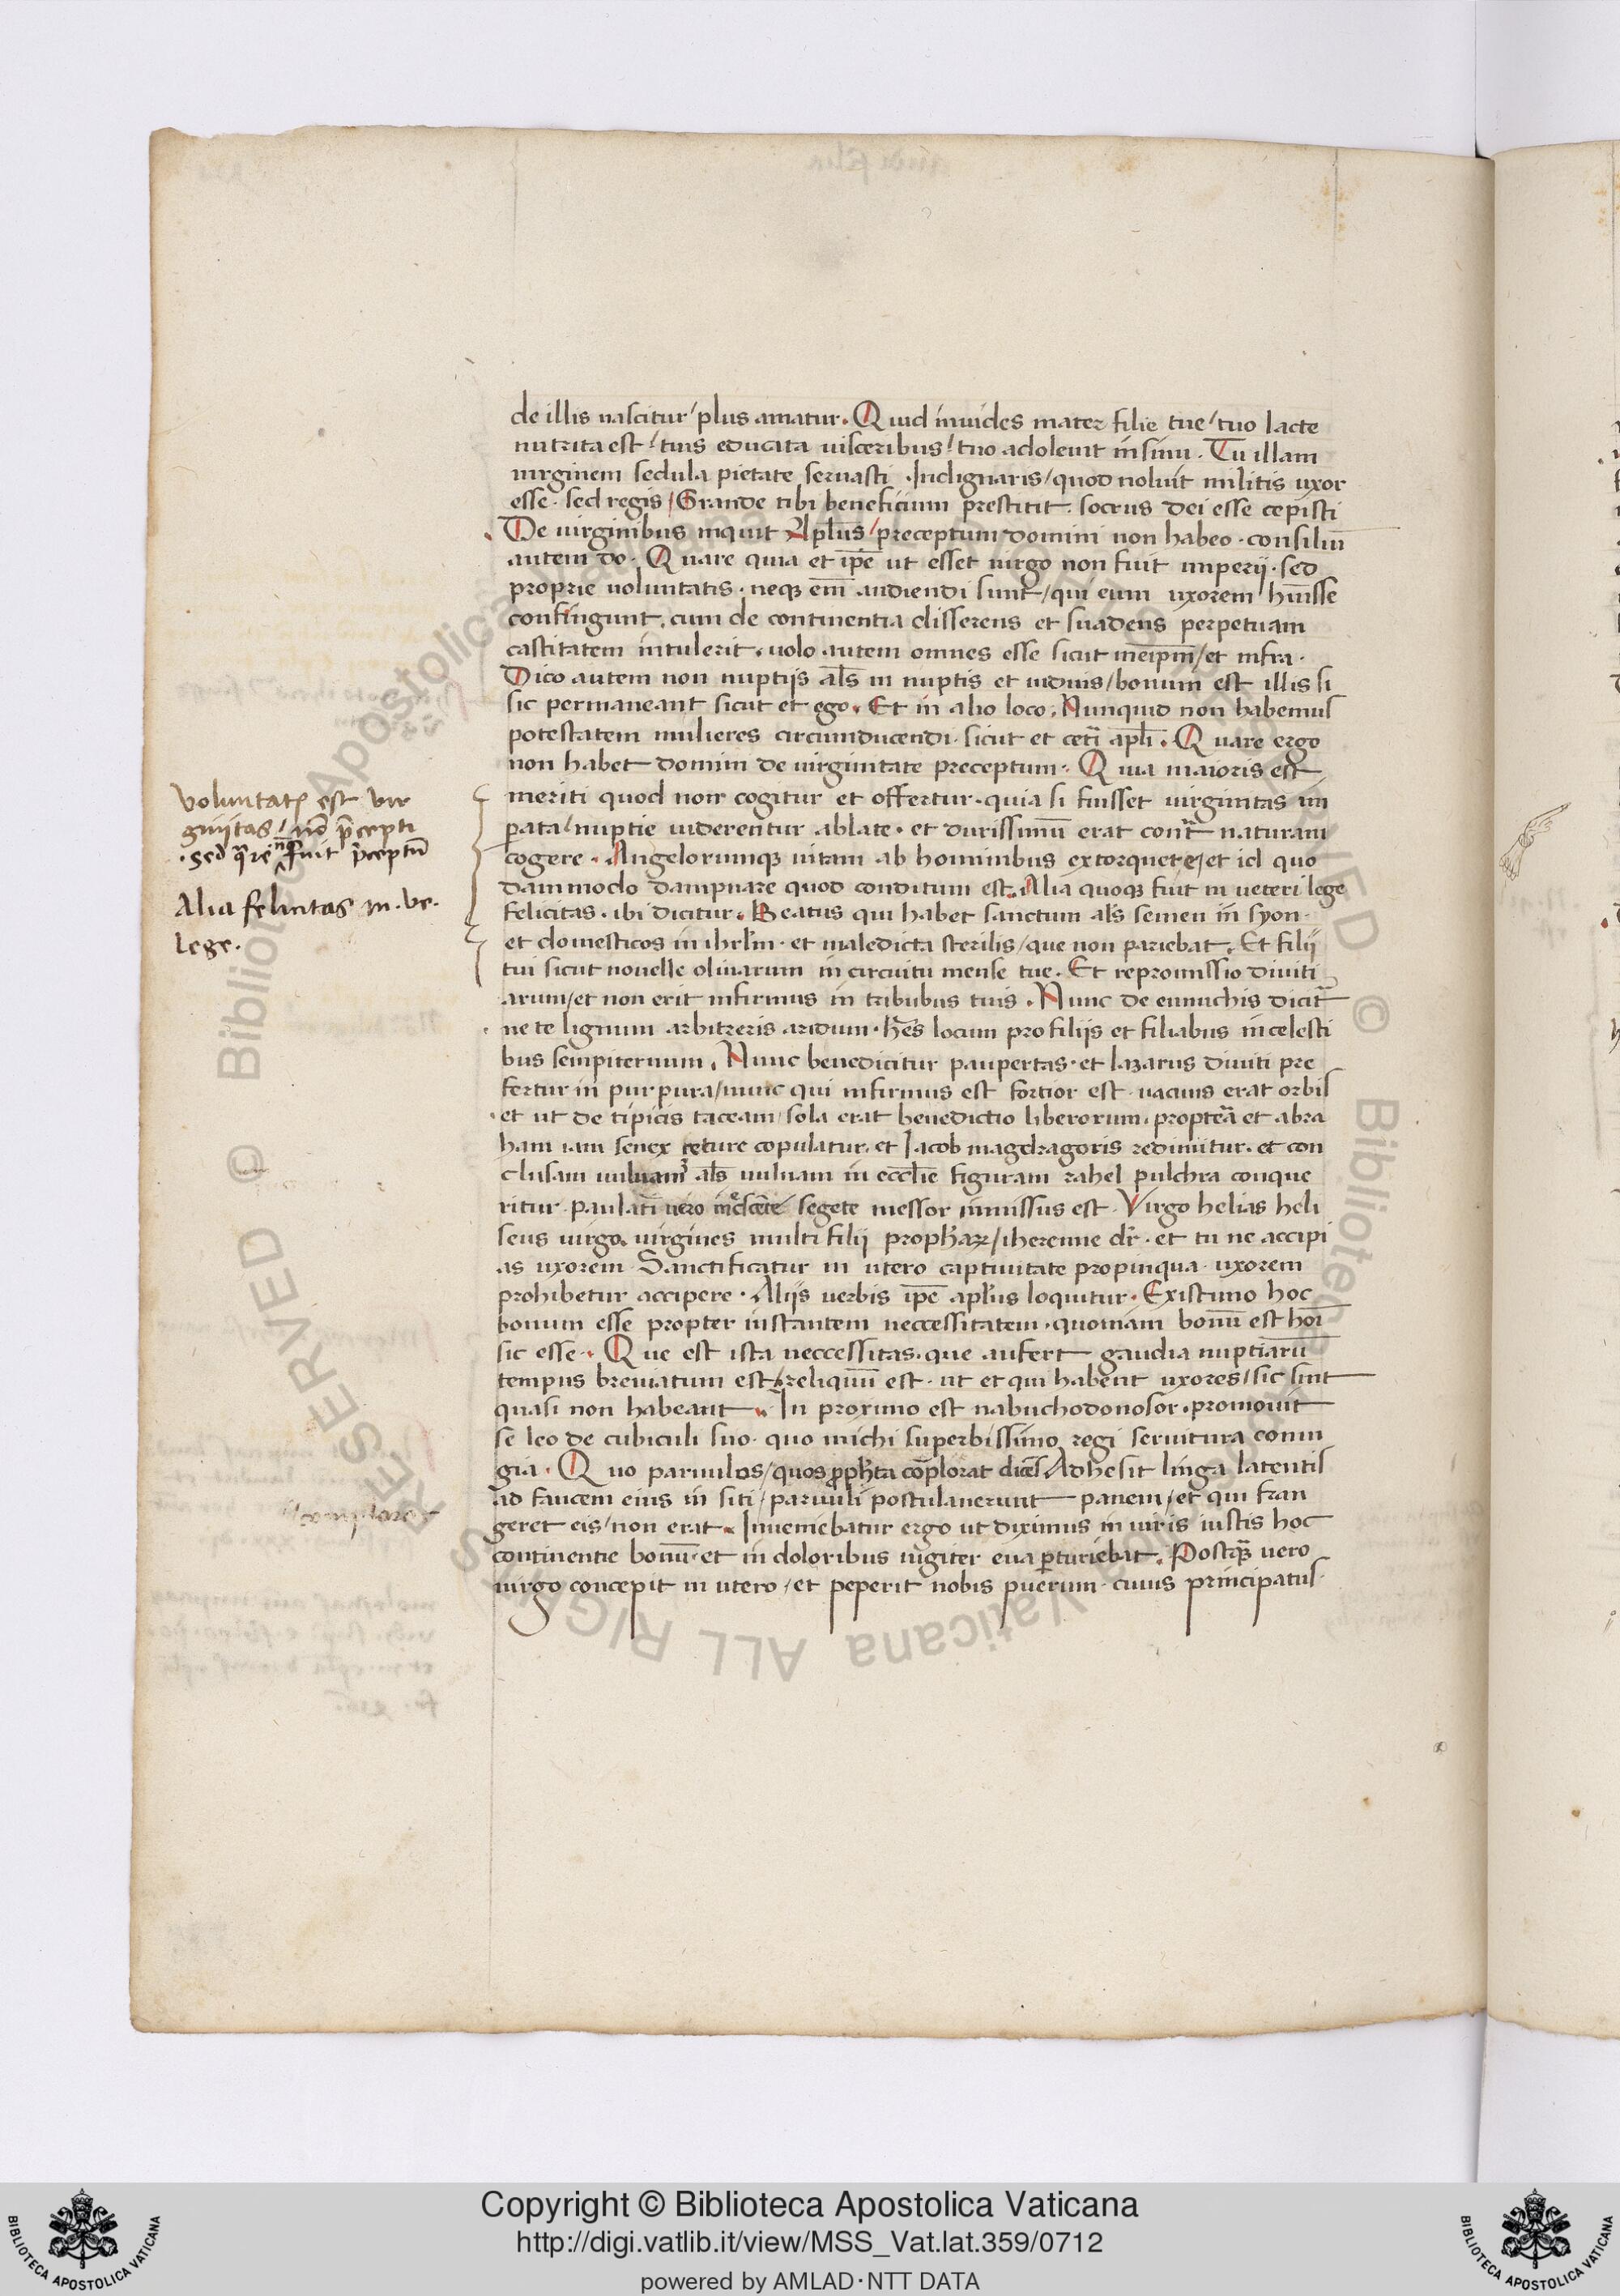 de illis nascitur / plus amatur. Quid inuides mater filie tue / tuo lacte
nutrita est / tuis educata uisceribus / tuo adoleuit in sinu. Tu illam
uirginem sedula pietate seruasti. Indignaris / quod noluit militis uxor
esse. sed regis / Grande tibi beneficium prestitit. socrus dei esse cepisti
De uirginibus inquit Apl̄us / preceptum domini non habeo. consiliū
autem do. Quare quia et ip̄e ut esset uirgo non fuit imperij. sed
proprie uoluntatis. neqꝫ em̄ audiendi sunt / qui eum uxorem hūisse
confingunt. cum de continentia disserens et suadens perpetuam
castitatem intulerit. uolo autem omnes esse sicut meip̄m / et infra.
Dico autem non nuptijs al̄s in nuptis et uiduis / bonum est illis si
sic permaneant sicut et ego. Et in alio loco. Nunquid non habemus
potestatem mulieres circumducendi. sicut et cet̄i apl̄i. Quare ergo
non habet domini de uirginitate preceptum. Quia maioris est
meriti quod non cogitur et offertur. quia si fuisset uirginitas im
pata / nuptie uiderentur ablate. et durissimū erat cont̄ naturam
cogere. Angelorumqꝫ uitam ab hominibus extorquere / et id quo
dammodo dampnare quod conditum est. Alia quoqꝫ fuit in ueteri lege
felicitas. ibi dicitur. Beatus qui habet sanctum al̄s semen in syon.
et domesticos in ihrl̄m. et maledicta sterilis / que non pariebat. Et filij
tui sicut nouelle oliuarum in circuitu mense tue. Et repromissio diuiti
arum / et non erit infirmus in tribubus tuis. Nunc de eunuchis dicit̄
ne te lignum arbitreris aridum. hēs locum pro filijs et filiabus in celesti
bus sempiternum. Nunc benedicitur paupertas. et lazarus diuiti pre
fertur in purpura / nunc qui infirmus est fortior est. uacuus erat orbis
et ut de tipicis taceam / sola erat benedictio liberorum. propteā et abra
ham iam senex ceture copulatur. et Iacob magdragoris redimitur. et con
clusam uuluam al̄s uuluam in eccl̄ie figuram rahel pulchra conque
ritur. paulatī uero segete messor immissus est. Virgo helias heli
seus uirgo. uirgines multi filij prophaꝝ / iheremie dr̄. et tu ne accipi
as uxorem. Sanctificatur in utero captiuitate propinqua. uxorem
prohibetur accipere. Alijs uerbis ip̄e apl̄us loquitur. Existimo hoc
bonum esse propter instantem neccessitatem. quoniam bonū est hoī
sic esse. Que est ista neccessitas. que aufert gaudia nuptiarū
tempus breuiatum est / reliquū est. ut et qui habent uxores / sic sint
quasi non habeant. In proximo est nabuchodonosor. promouit
se leo de cubiculi suo. quo michi superbissimo regi seruitura coniu
gia. Quo paruulos / quos ꝓph̄ta cōplorat dicēs Adhesit linga latentis
ad faucem eius in siti / paruuli postulauerunt panem / et qui fran
geret eis / non erat. Inueniebatur ergo ut diximus in uiris iustis hoc
continentie bonū. et in doloribus iugiter eua ꝑturiebat. Postqꝫ uero
uirgo concepit in utero / et peperit nobis puerum. cuius principatus.
voluntatꝭ est vir
ginitas / nō p̄cepti
. sed q̄re n̄ fuit p̄ceptū
Alia felicitas in. ve.
lege.
Copyright © Biblioteca Apostolica Vaticana
http://digi.vatlib.it/view/MSS_Vat.lat.359/0712
powered by AMLAD·NTT DATA
BIBLIOTECA APOSTOLICA VATICANA
BIBLIOTECA APOSTOLICA VATICANA